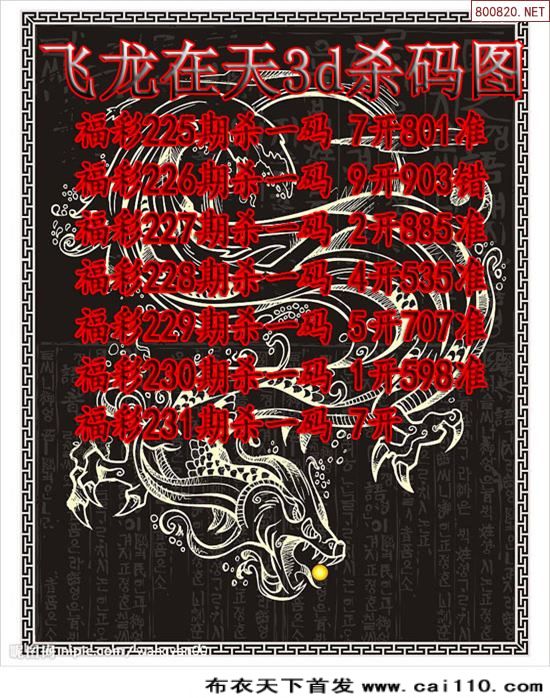 800820.NET
飞龙在天3d杀码图
福彩225期杀一码 7开801准
福彩226期杀一码 9开903错
福彩227期杀一码 2开885准
福彩228期杀一码 4开535准
福彩229期杀一码 5开707准
福彩230期杀一码 1开598准
福彩231期杀一码 7开
布衣天下首发 www.cai110.com